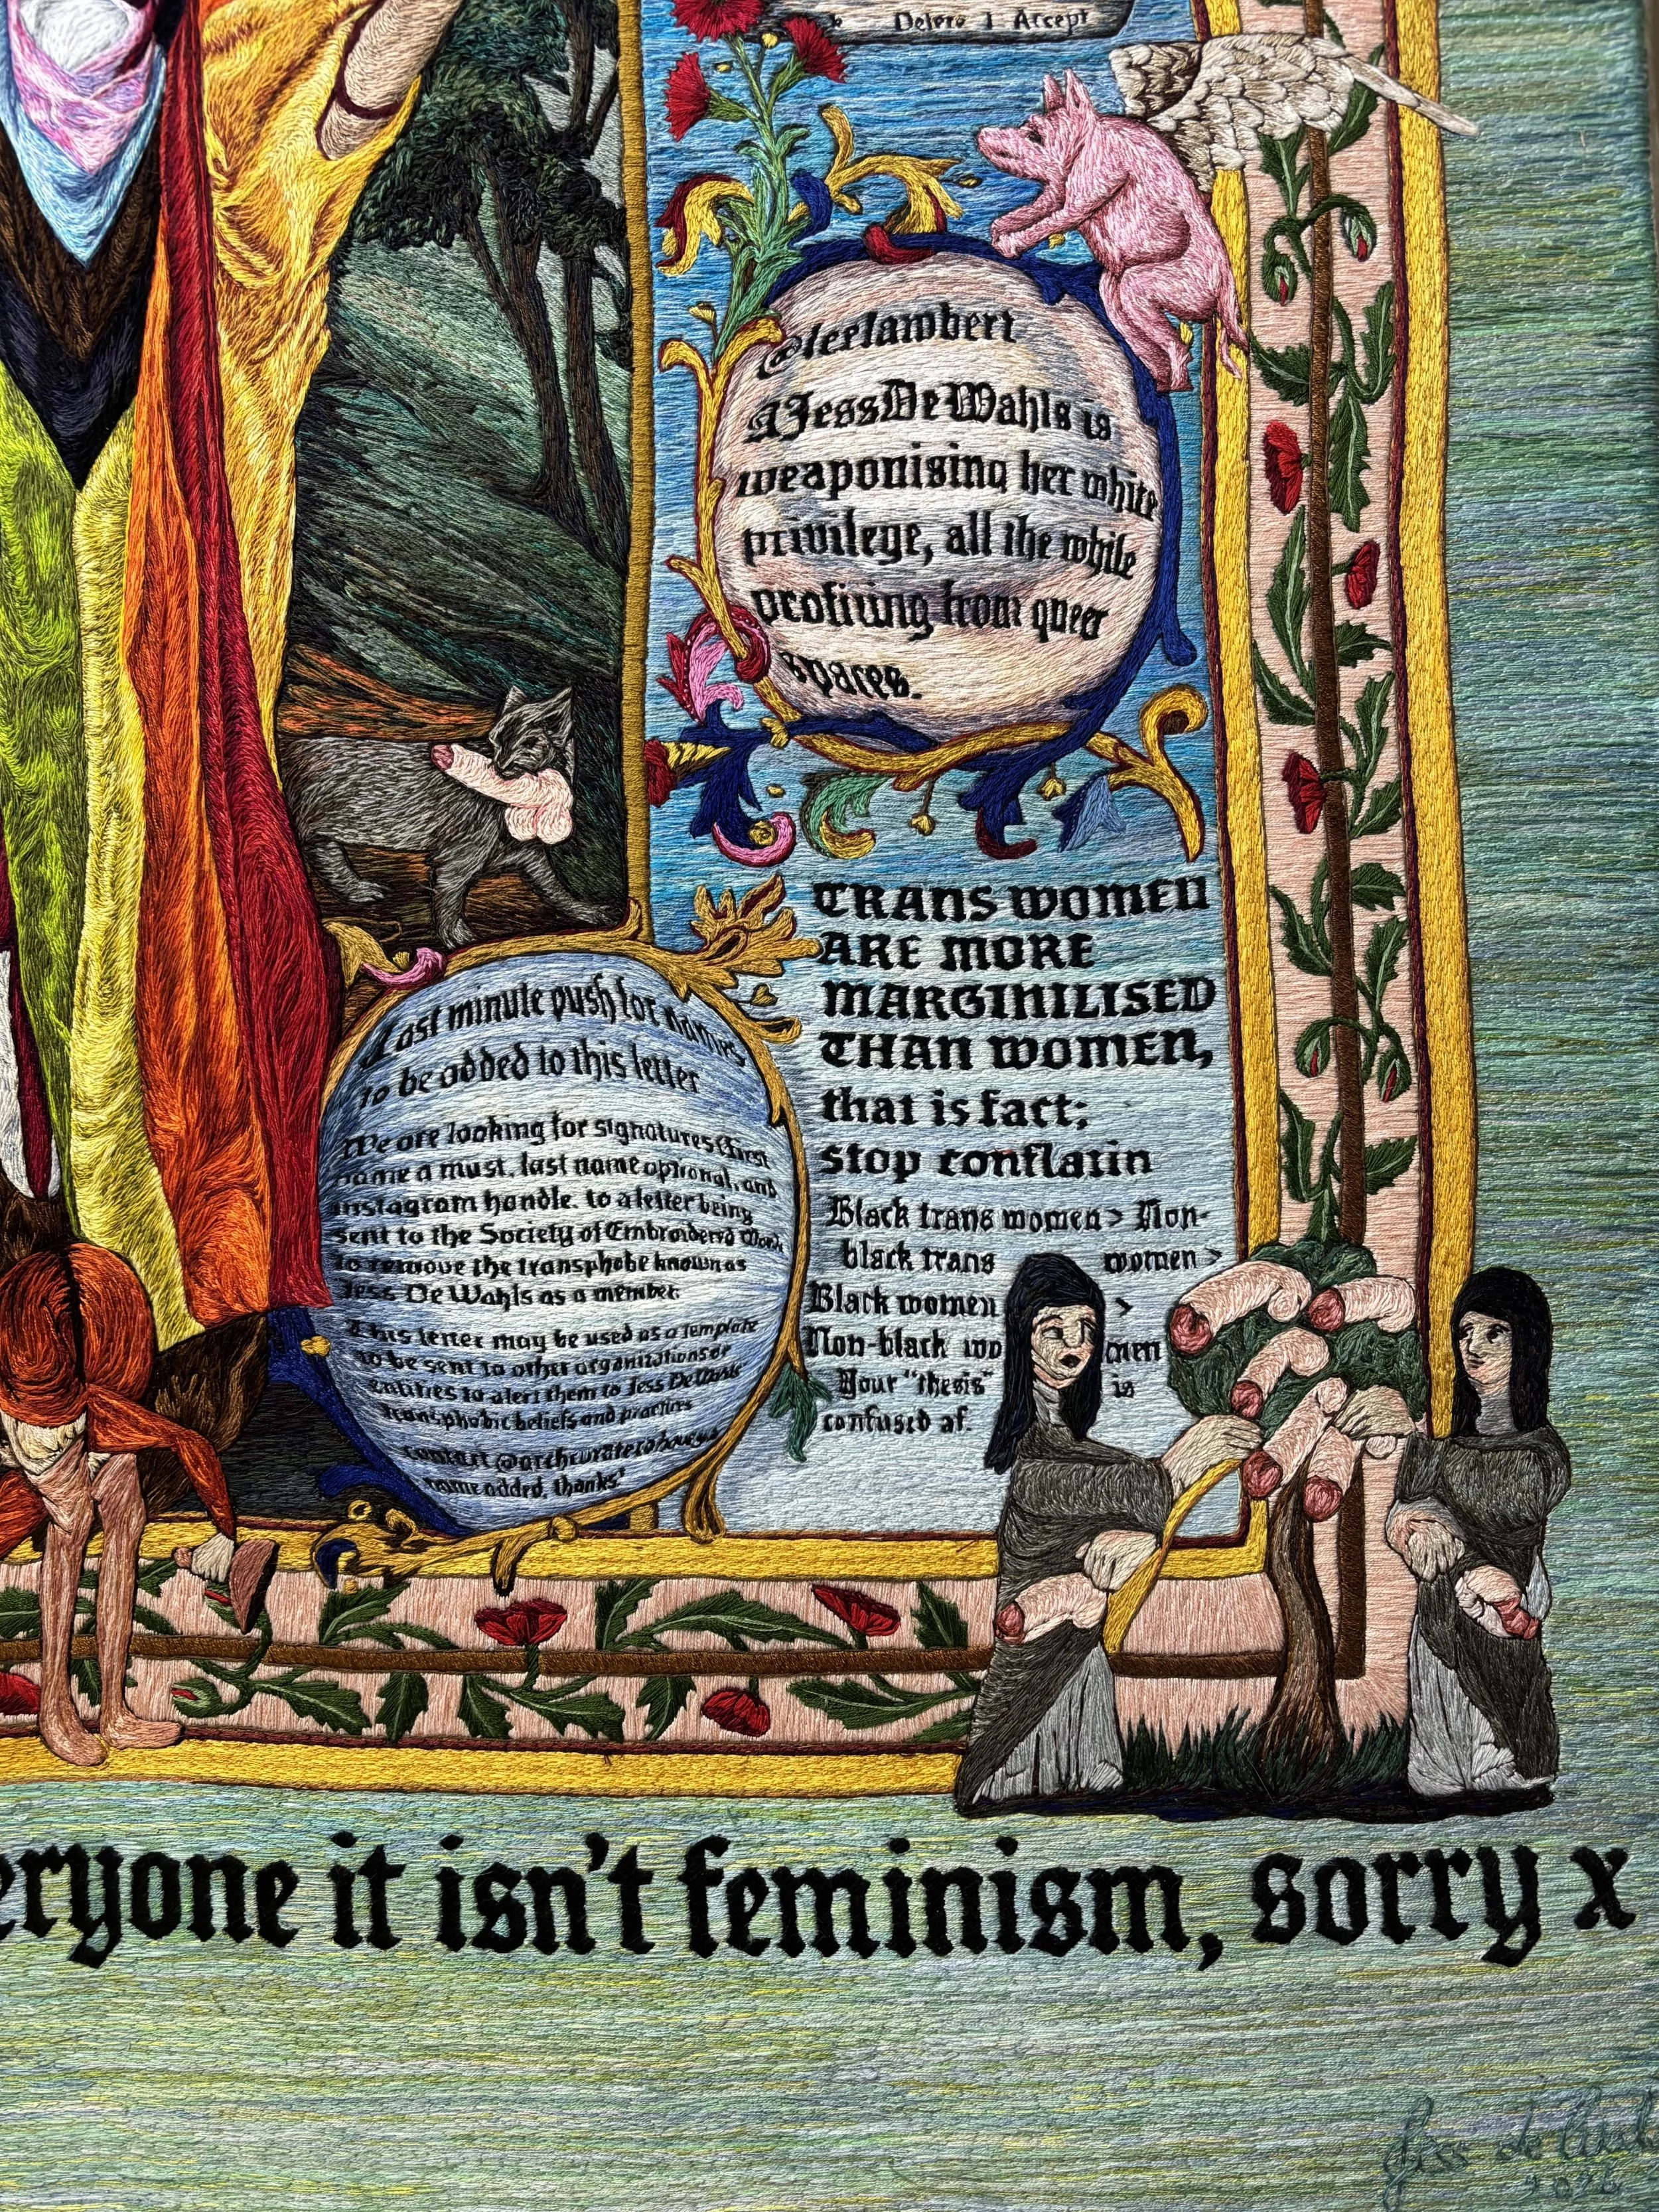 Delete I Accept
@leelambert
@JessDeWahls is
weaponising her white
privilege, all the while
profiting from queer
spaces.
TRANS WOMEN
ARE MORE
MARGINILISED
THAN WOMEN,
that is fact;
stop conflatin
Black trans women > Non-
black trans women >
Black women >
Non-black women
Your "thesis" is
confused af.
Last minute push for names
to be added to this letter
We are looking for signatures (first
name a must, last name optional, and
instagram handle, to a letter being
sent to the Society of Embroidered Work
to remove the transphobe known as
Jess De Wahls as a member.
This letter may be used as a template
to be sent to other organizations or
entities to alert them to Jess De Wahls'
transphobic beliefs and practices
contact
name added, thanks!
eryone it isn't feminism, sorry x
Jess de Wahl